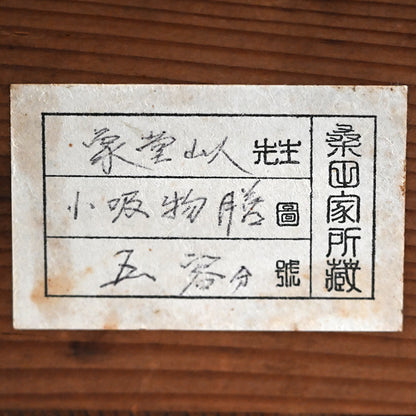 桑田家所藏
象堂山人 先生
小吸物膳 圖
五客分 號